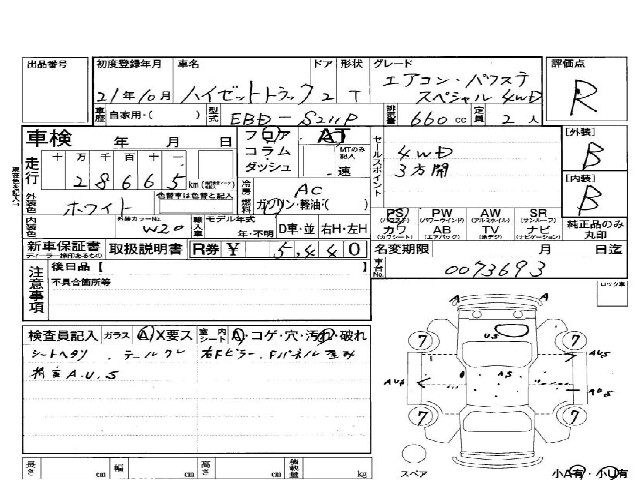 出品番号 初度登録年月 車名 ドア 形状 グレード 評価点
21年10月 ハイゼットトラック 2 T エアコン・パワステ
スペシャル 4WD R
車歴 自家用・( ) 型式 EBD-S211P 排気量 660 cc 定員 2 人
車検 年 月 日 フロア AT
コラム MTのみ記入
ダッシュ 速
セールスポイント 4WD
3方開
[外装] B
[内装] B
走行 十 万 千 百 十 一
28665 km
冷房 AC
燃料 ガソリン・軽油・( )
外装色 ホワイト 色替車は色替と記入
内装色 外装カラーNo. W20 輸入車 モデル年式 年・不明 D車・並 右H・左H
PS (パワステ) PW (パワーウインド) AW (アルミホイル) SR (サンルーフ)
カワ (カワシート) AB (エアバック) TV (ホデジ) ナビ (ナビゲーション)
純正品のみ丸印
新車保証書 取扱説明書 R券 ¥ 5,440 名変期限 月 日迄
ディーラー捺印あるもの
車台No. 0073693
注意事項 後日品【 】
不具合箇所等
ロック車
検査員記入 ガラス A/X要ス 室内シート A・コゲ・穴・汚れ・破れ
シートヘタリ
下廻A.U.S
A A
7 7
7 7
US
AUS
AUS
スペア
長さ cm 幅 cm 高さ cm 積載量 kg
小A有・小U有